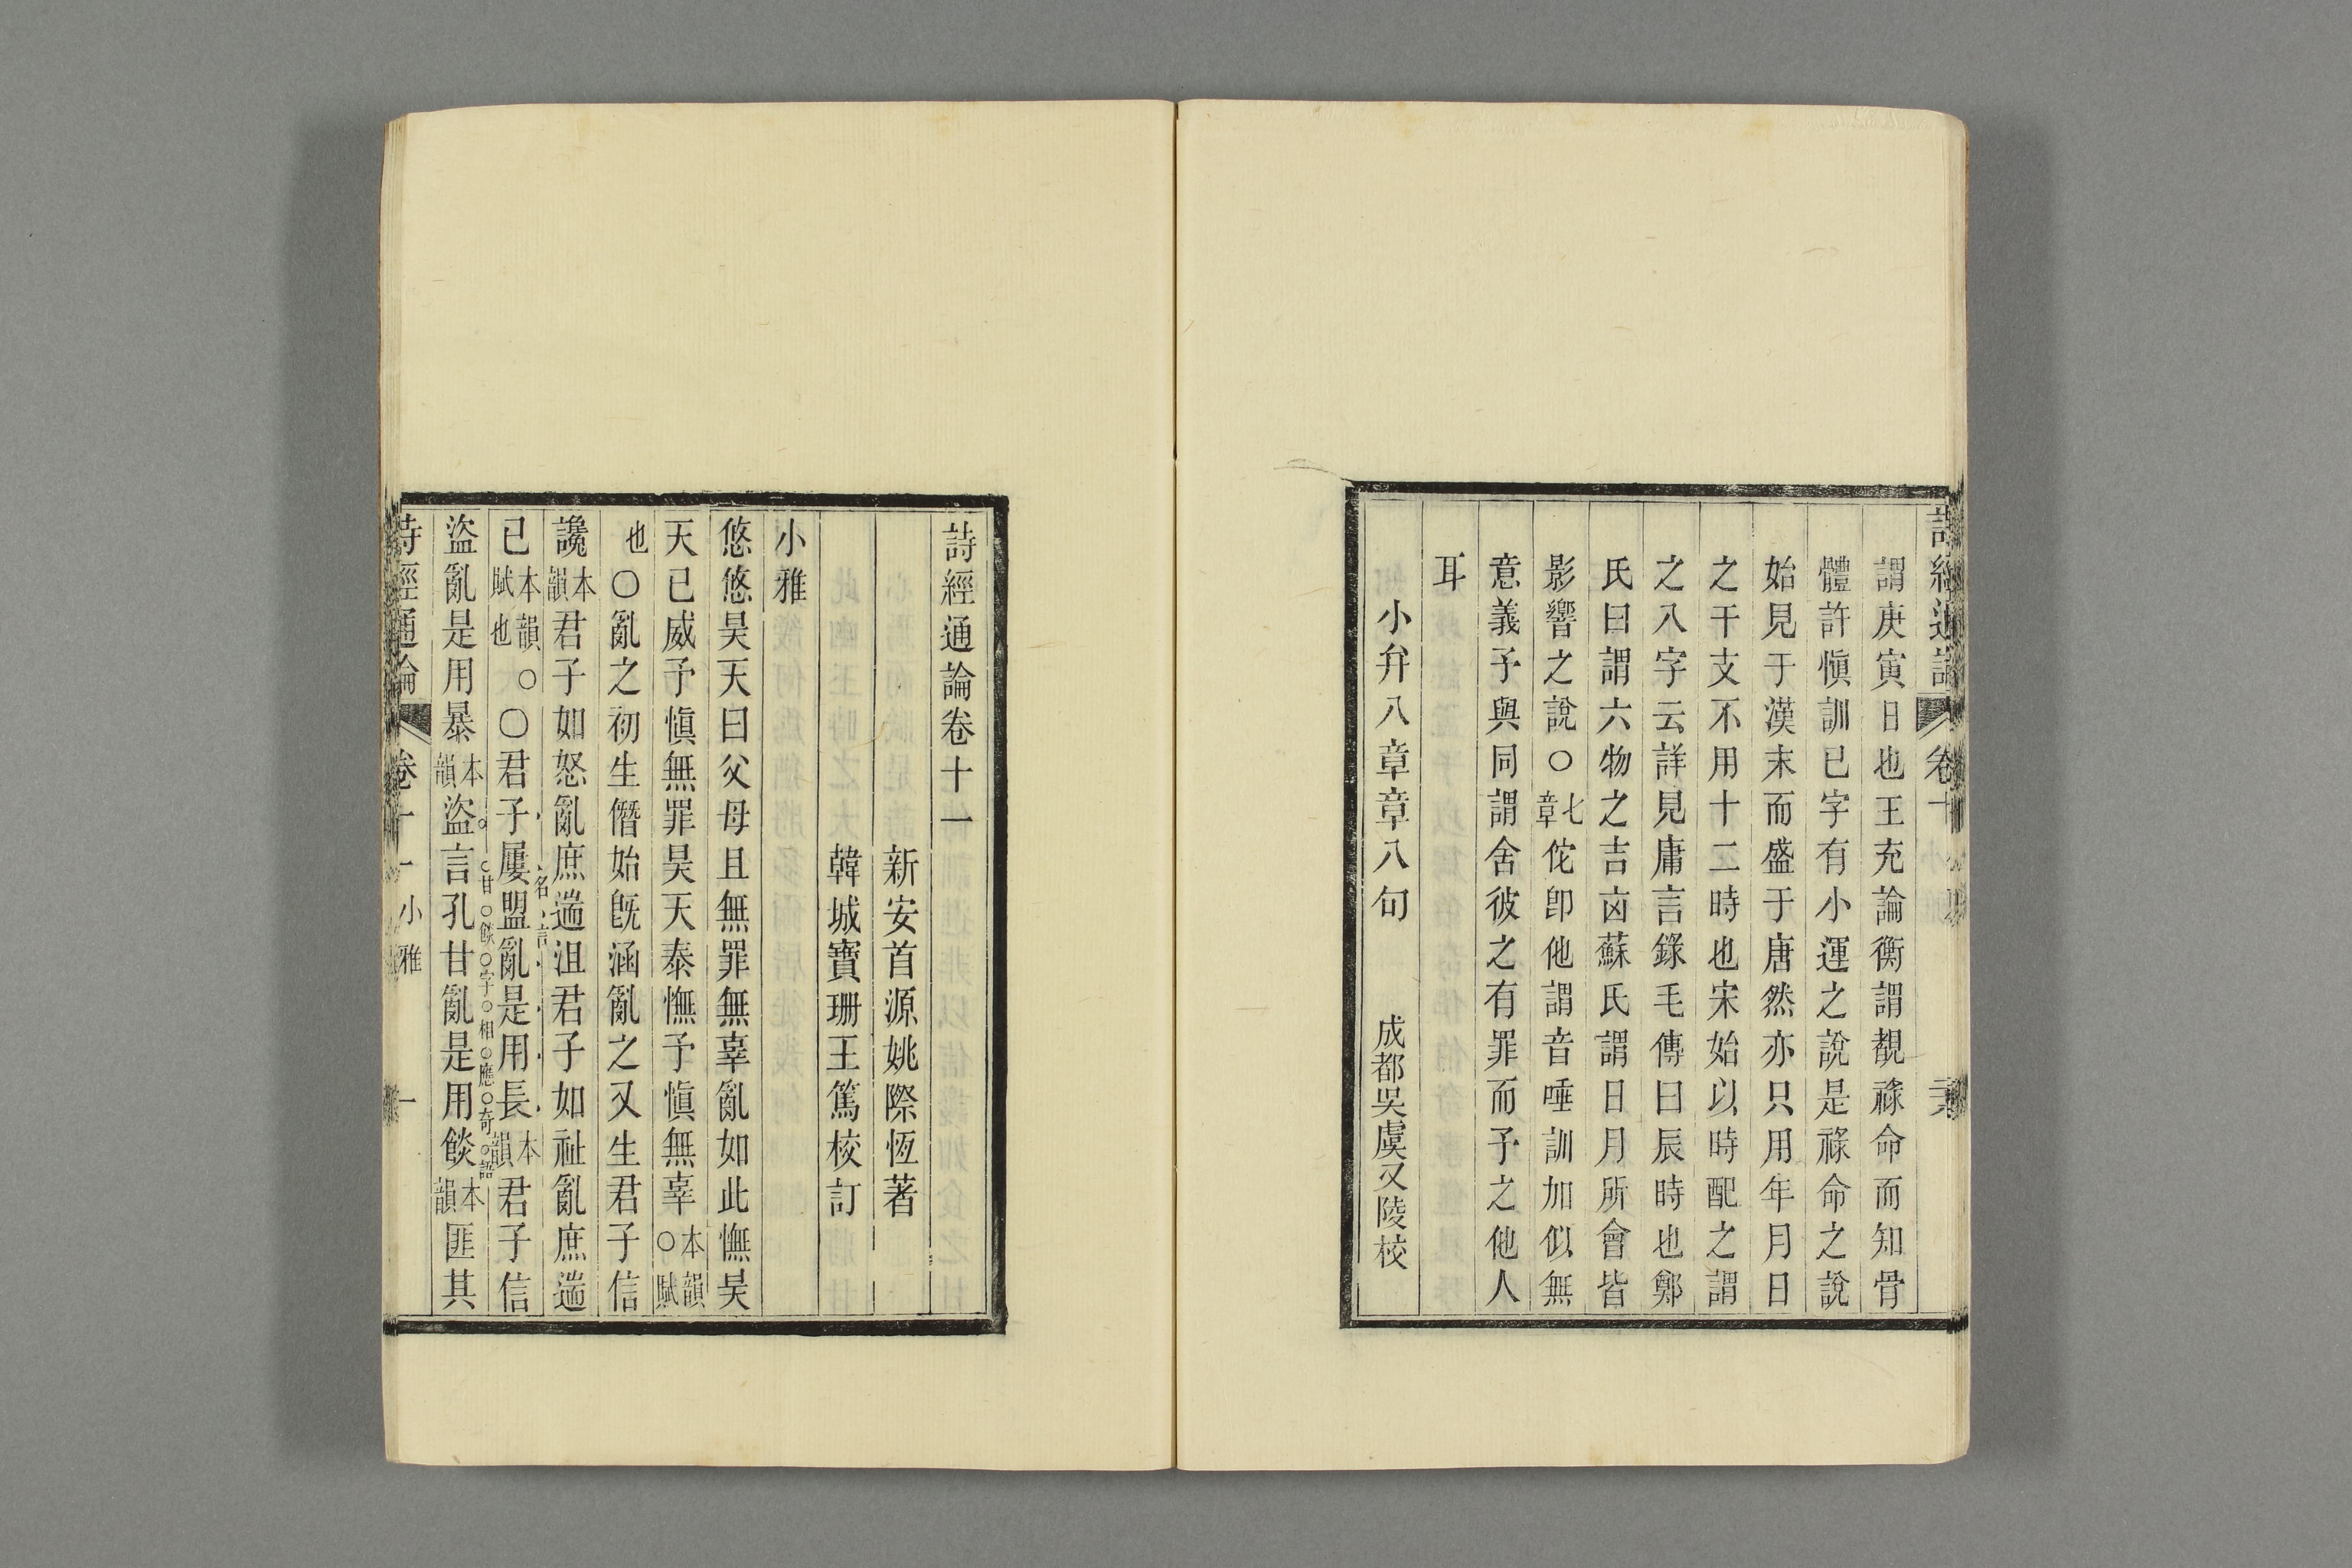 謂庚寅日也王充論衡謂覩祿命而知骨
體許愼訓已字有小運之說是祿命之說
始見于漢末而盛于唐然亦只用年月日
之干支不用十二時也宋始以時配之謂
之八字云詳見庸言錄毛傳曰辰時也鄭
氏曰謂六物之吉凶蘇氏謂日月所會皆
影響之說○七章佗卽他謂音唾訓加似無
意義予與同謂舍彼之有罪而予之他人
耳
小弁八章章八句　成都吳虞又陵校
詩經通論卷十一
新安首源姚際恆著
韓城寶珊王篤校訂
小雅
悠悠昊天曰父母且無罪無辜亂如此憮昊
天已威予愼無罪昊天泰憮予愼無辜本韻○賦
也○亂之初生僭始旣涵亂之又生君子信
讒本韻君子如怒亂庶遄沮君子如祉亂庶遄
已本韻○賦也○君子屢盟亂是用長本韻君子信
名言
盜亂是用暴本韻盜言孔甘亂是用餤本韻匪其
甘○餤○字○相○應○奇○語
詩經通論　卷十一　小雅　一